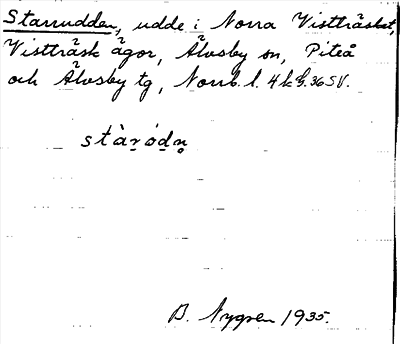 Starrudden, udde i Norra Vistträsket,
Vistträsk ägor, Älvsby sn, Piteå
och Älvsby tg, Norrb. l. 4 k f. 36 SV.
stàr̲ód̲n̥
B. Nygren 1935.